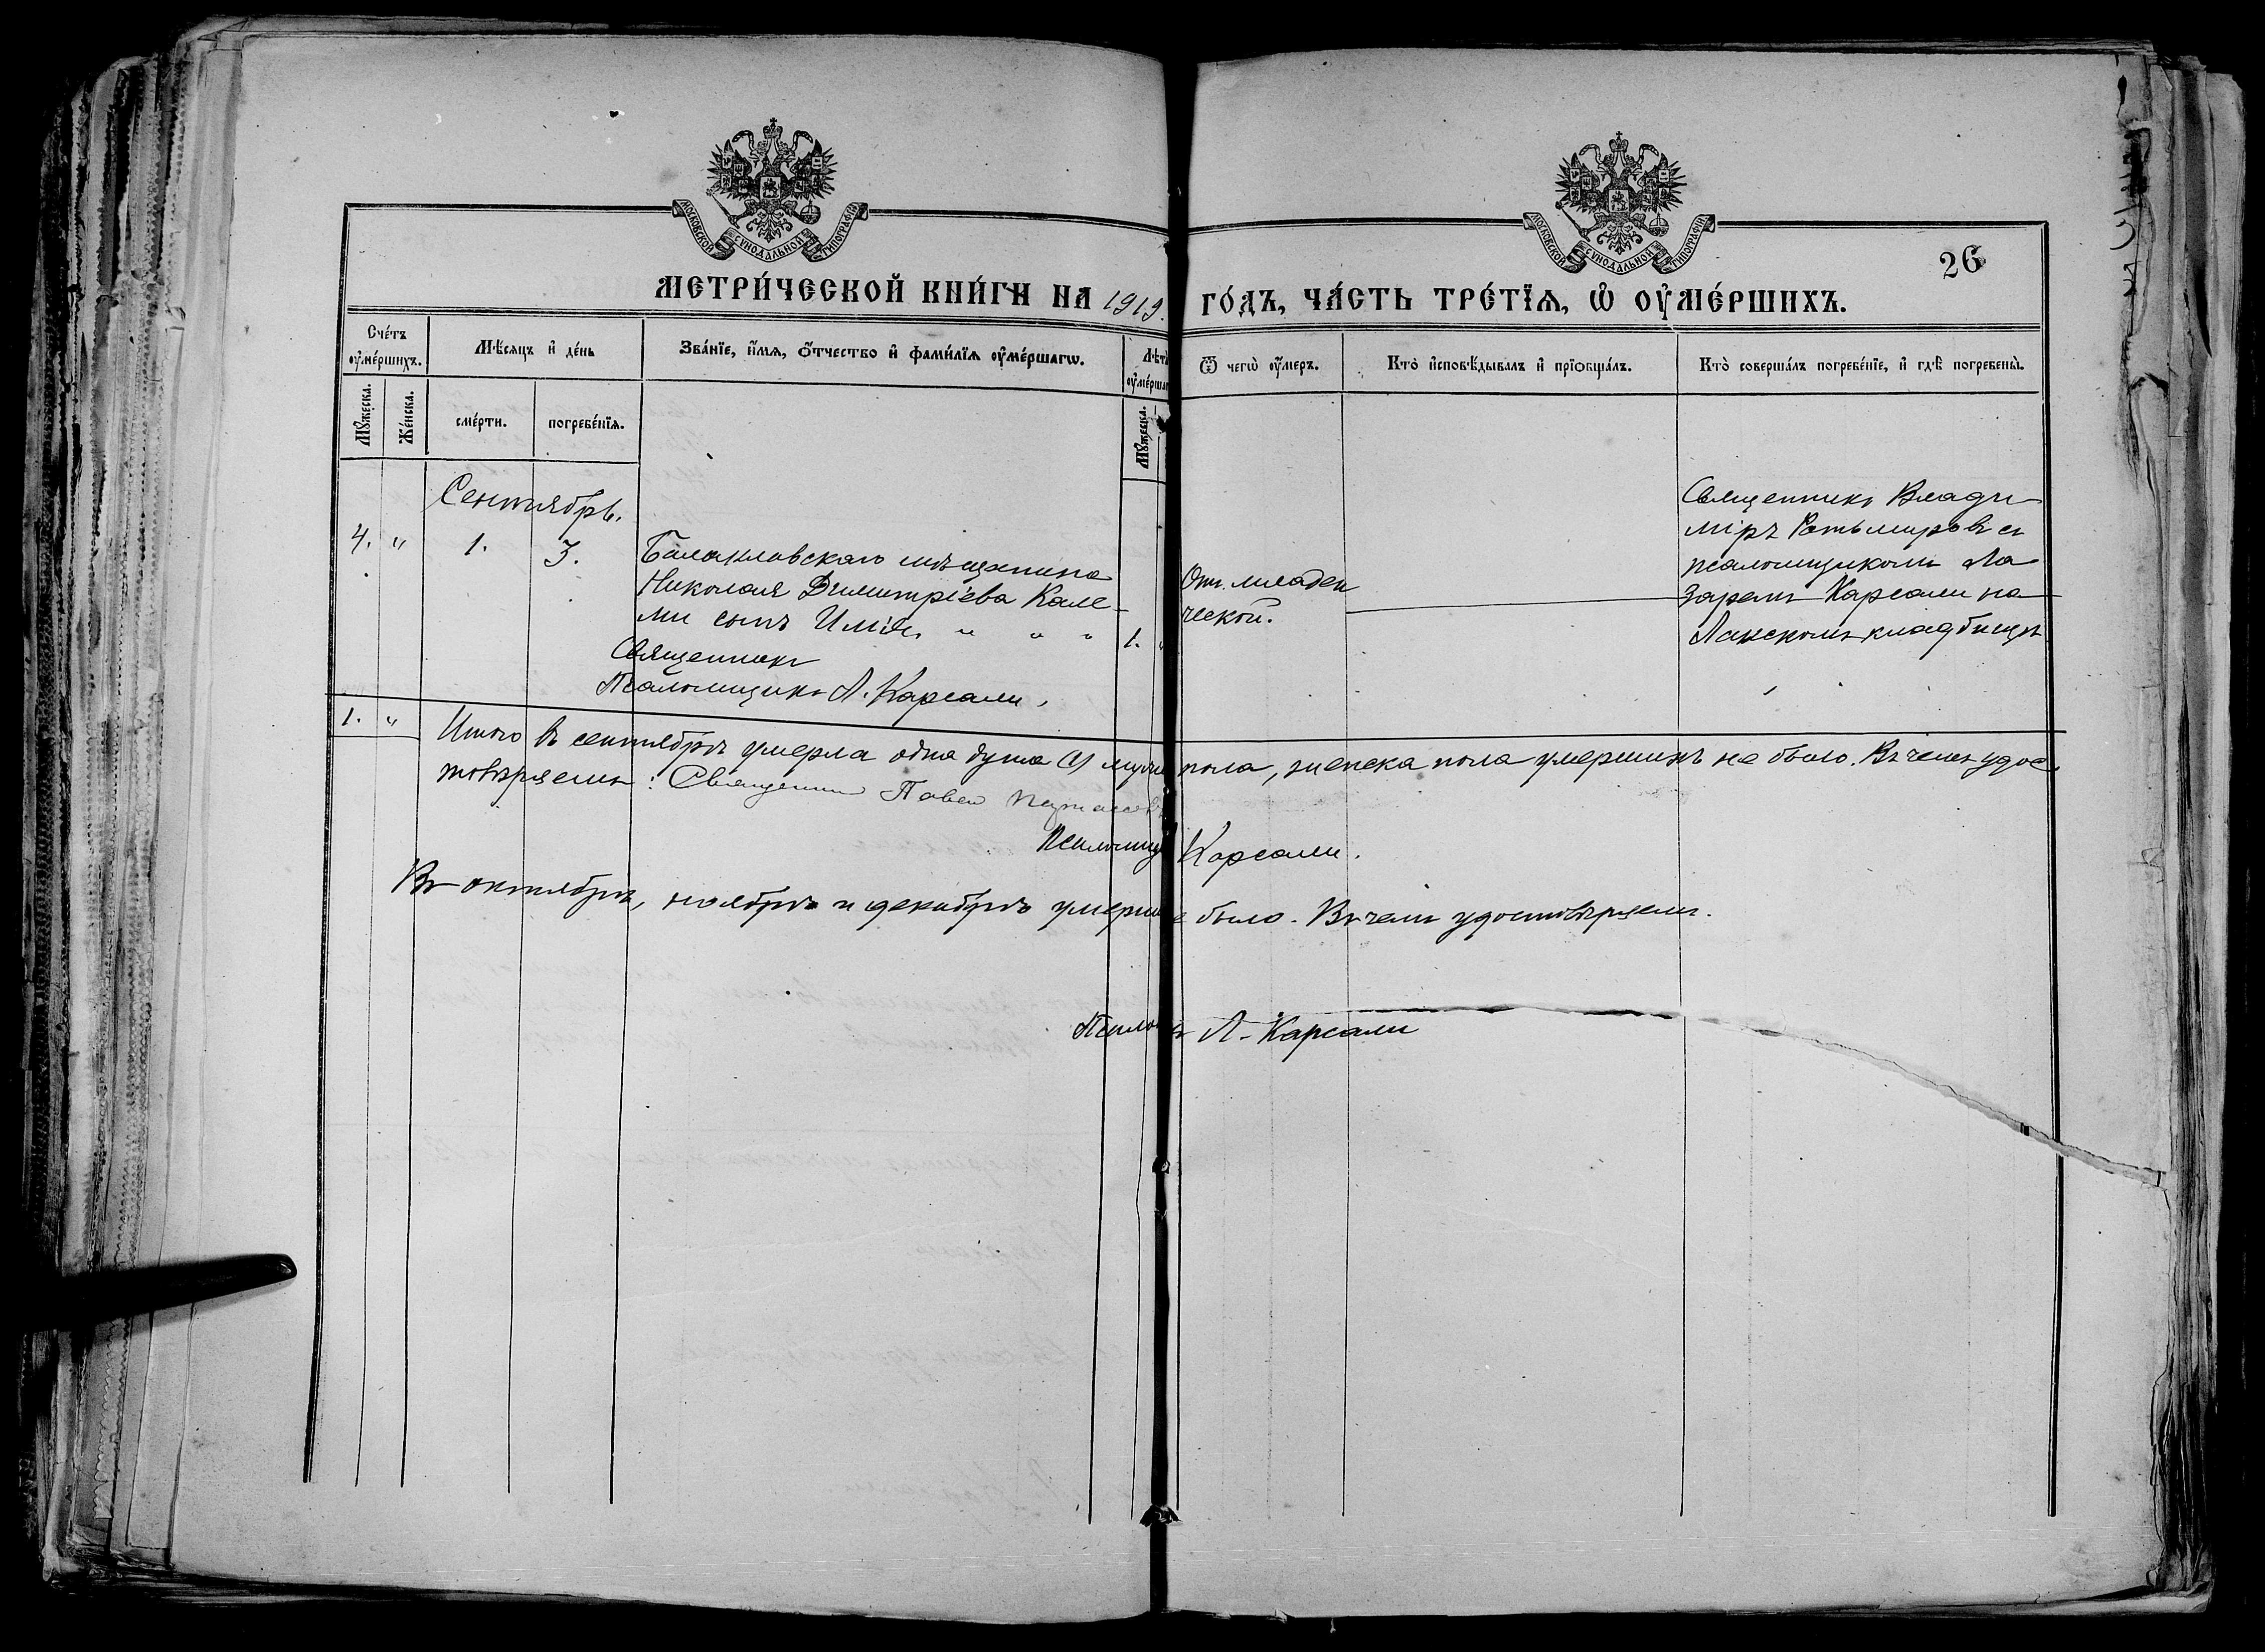 МОСКОВСКОЙ СѴНОДАЛЬНОЙ ТИПОГРАФІИ
МОСКОВСКОЙ СѴНОДАЛЬНОЙ ТИПОГРАФІИ
26
МЕТРИ́ЧЕСКОЙ КНИ́ГИ НА 1919. ГО́ДЪ, ЧА́СТЬ ТРЕ́ТЇѦ, Ѡ҆ ОУ҆МЕ́РШИХЪ.
Сче́тъ оу҆ме́ршихъ.
Мѣ́сѧцъ и҆ де́нь
Зва́нїе, и҆́мѧ, ѻ҆́тчество и҆ фами́лїѧ оу҆ме́ршагѡ.
Лѣт
оу҆ме́ршаг
Ѿ чегѡ̀ оу҆́меръ.
Кто̀ и҆сповѣ́дывалъ и҆ прїѡбща́лъ.
Кто̀ соверша́лъ погребе́нїе, и҆ гдѣ̀ погребены̀.
Мꙋ́жеска.
Же́нска.
сме́рти.
погребе́нїѧ.
Мꙋ́жеска.
Сентябрь.
4. " 1. 3.
Балаклавскаго мѣщанина
Николая Димитріева Кале-
ми сынъ Илія. " " " 1.
Священникъ
Псаломщикъ Л. Карсали.
Отъ младен
ческой.
Священникъ Влади-
міръ съ
псаломщикомъ Ла
заремъ Карсали на
кладбищѣ
1. "
Итого въ сентябрѣ умерла одна душа (1) муж пола, женска пола умершихъ не было. Въ чемъ удос
товѣряемъ: Священник Павел
Псаломщ Карсали.
Въ октябрѣ, ноябрѣ и декабрѣ умерш е было. Въ чемъ удостовѣряемъ.
Псалом ъ Л. Карсали